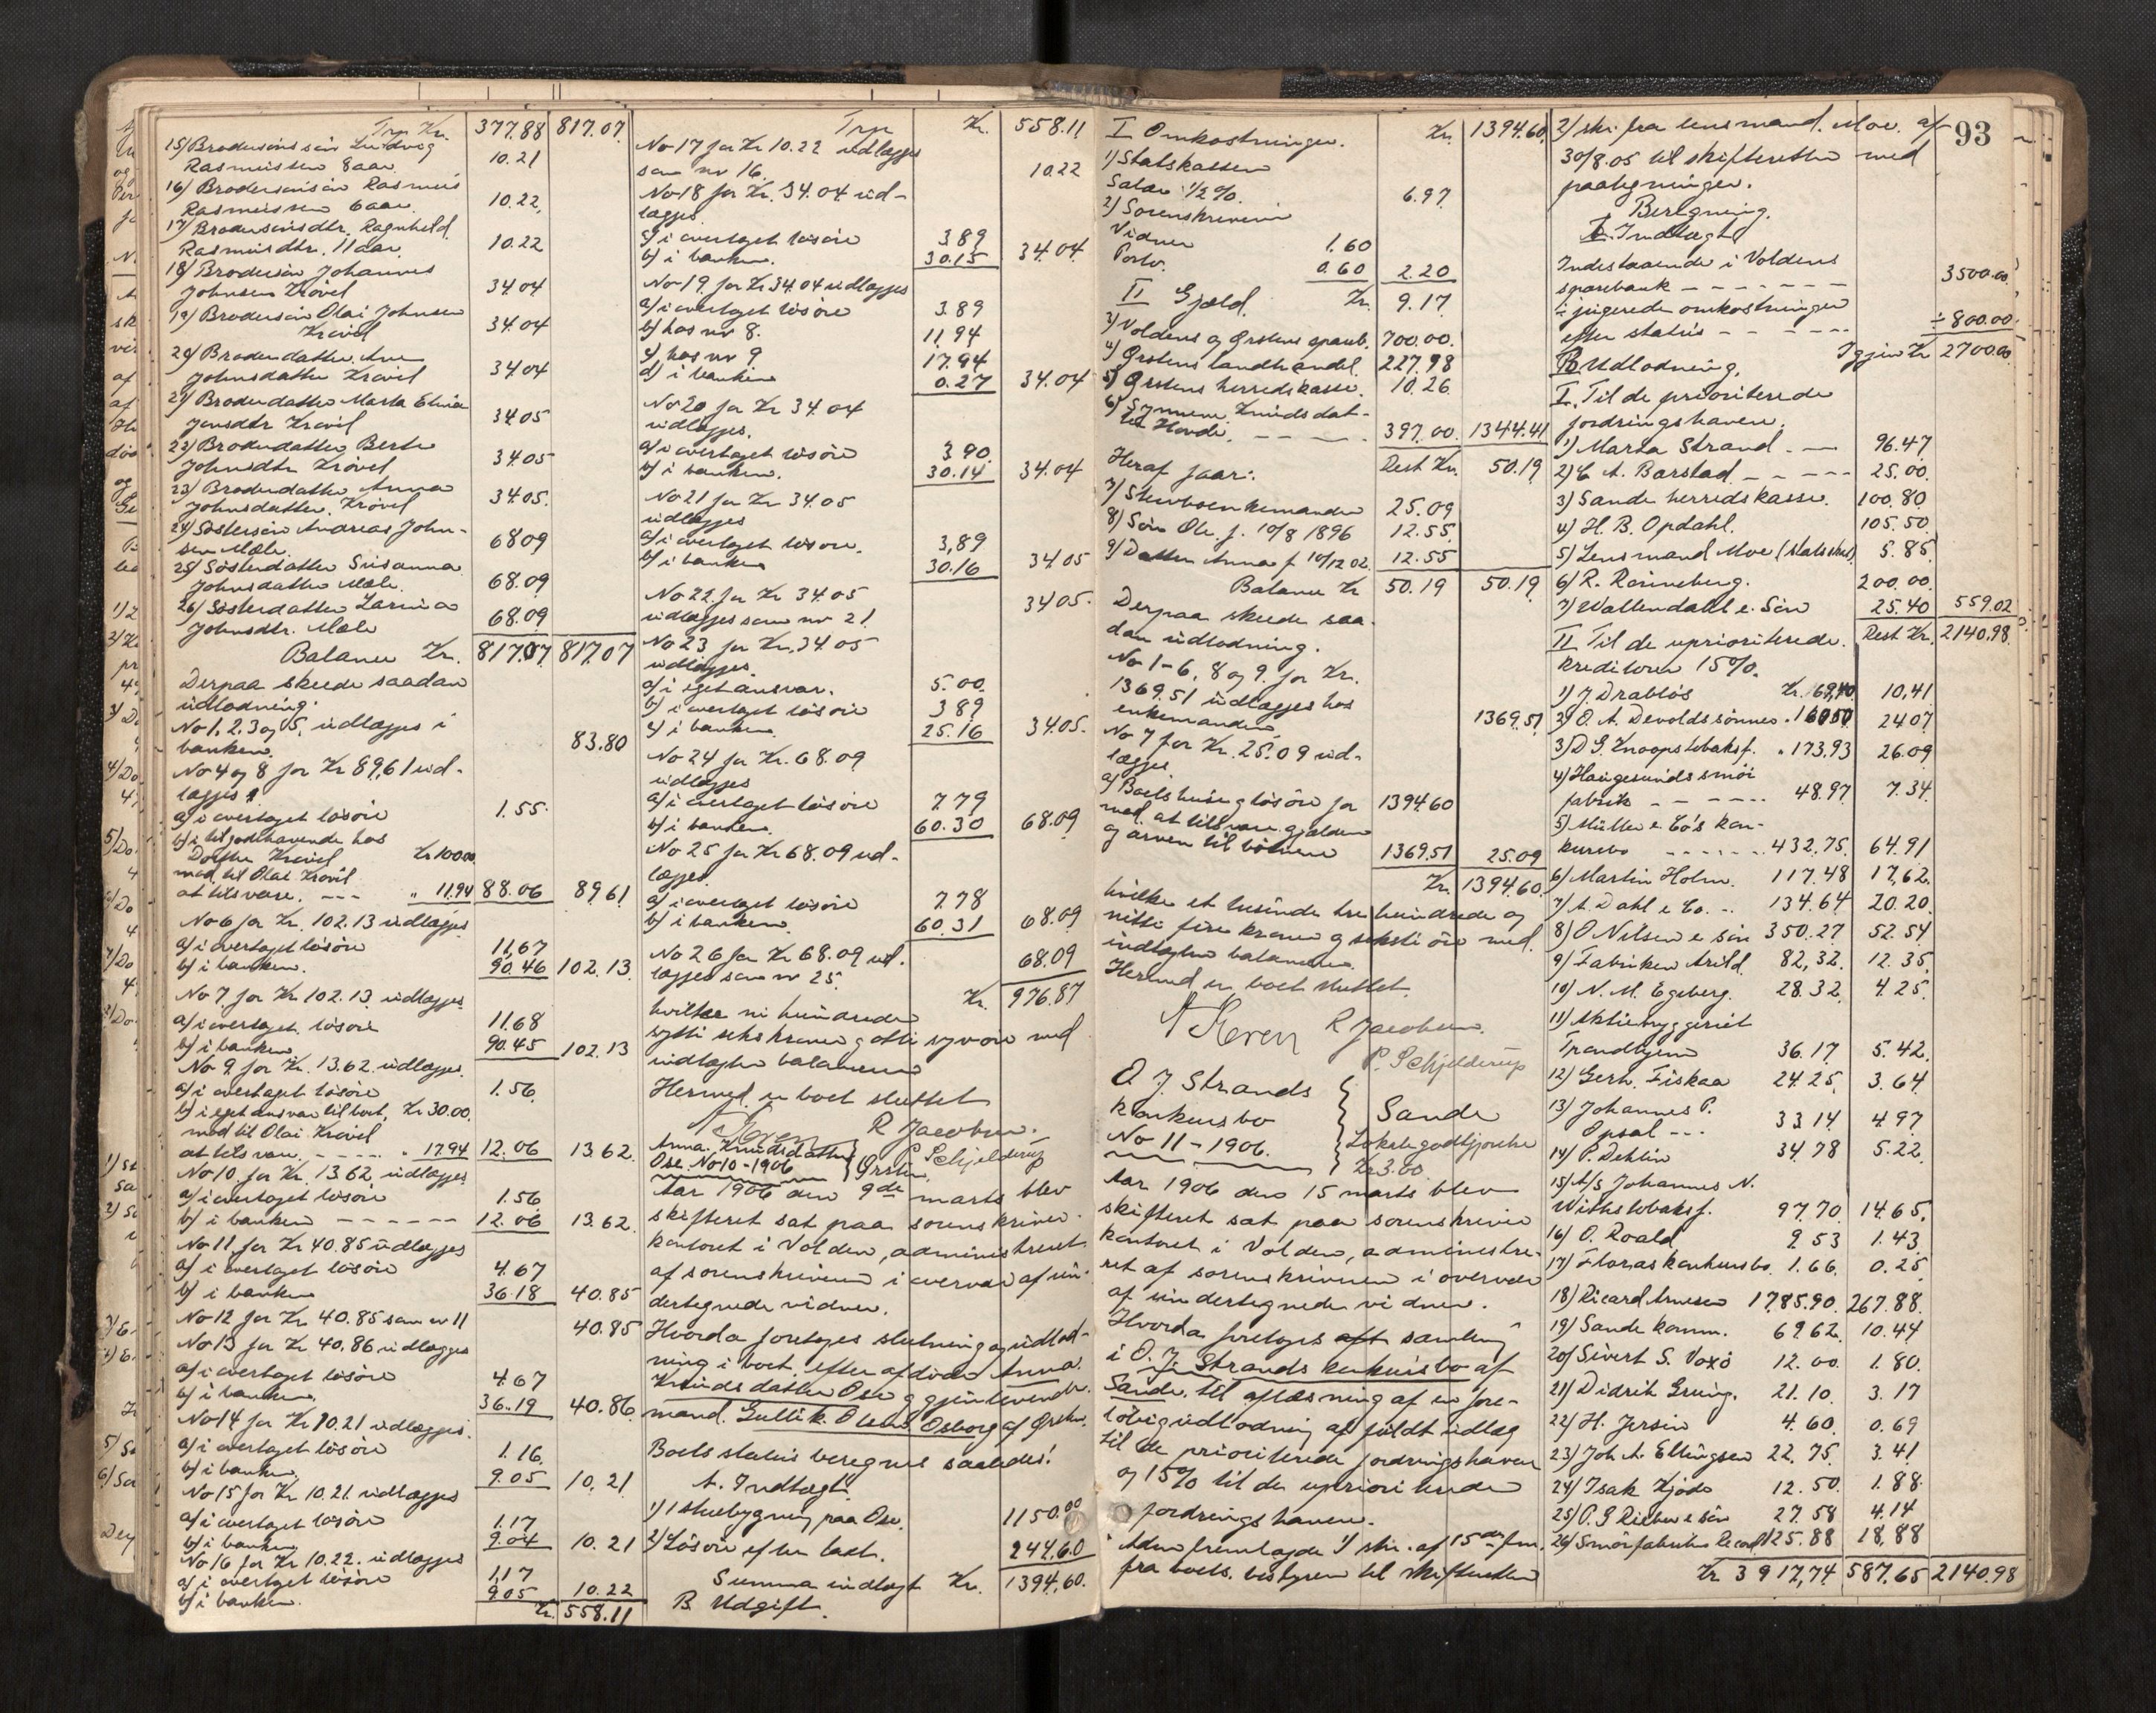 Trp Kr. 377.88 817.07
15/ Brodersöns sön Ludvig
Rasmussen 8 aar 10.21
16/ Brodersönsön Rasmus
Rasmussen 6 aar. 10.22
17/ Brodersönsdtr. Ragnhild
Rasmusdtr. 11 aar. 10.22
18/ Brodersön Johannes
Johnsen Krövel 34.04
19/ Brodersön Olai Johnsen
Krövel 34.04
20/ Broderdatter Ane
Johnsdatter Krövel 34.04
21/ Broderdatter Marta Elina
Jensdtr Krövel 34.05
22/ Broderdatter Berte
Johnsdtr Krövel 34.05
23/ Broderdatter Anna
Johnsdatter Krövel 34.05.
24/ Söstersön Andreas John-
sen Mæle. 68.09
25/ Sösterdatter Susanna
Johnsdatter Mæle. 68.09
26/ Sösterdatter Larina
Johnsdtr. Mæle 68.09
Balance Kr. 817.07 817.07
Derpaa skeede saadan
udlodning:
No 1, 2, 3 og 5, udlægges i
banken. 83.80
No 4 og 8 for Kr 89,61 ud-
lægges:
a/ i overtaget lösöre 1.55.
b/ i tilgodehavende hos
Dorthe Krövel Kr 100.00
med til Olai Krövel
at tilsvare. --- " 11.94 88.06 89.61
No 6 for Kr. 102.13 udlægges
a/ i overtaget lösöre 11.67
b/ i banken. 90.46 102.13
No 7 for Kr. 102.13 udlægges
a/ i overtaget lösöre 11.68
b/ i banken 90.45 102.13
No 9 for Kr. 13.62 udlægges.
a/ i overtaget lösöre 1.56
b/ i eget ansvar til boet, Kr 30.00
med til Olai Krövel
at tilsvare. ---- " 17.94 12.06 13.62
No 10 for Kr. 13.62 udlægges
a/ i overtaget lösöre 1.56
b/ i banken ------ 12.06 13.62
No 11 for Kr 40.85 udlægges
a/ i overtaget lösöre 4.67
b/ i banken 36.18 40.85
No 12 for Kr 40.85 som nr 11 40.85
No 13 for Kr 40.86 udlægges
a/ i overtaget lösöre 4.67
b/ i banken. 36.19 40.86
No 14 for Kr 10.21 udlægges.
a/ i overtaget lösöre 1.16.
b/ i banken. 9.05 10.21
No 15 for Kr 10.21 udlægges
a/ i overtaget lösöre 1.17
b/ i banken 9.04 10.21
No 16 for Kr 10.22. udlægges
a/ i overtaget lösöre 1.17
b/ i banken. 9.05 10.22
Kr. 558.11
Trp Kr. 558.11
No 17 for Kr 10.22 udlægges
som nr 16. 10.22
No 18 for Kr. 34.04 ud-
lægges.
a/ i overtaget lösöre 3.89
b/ i banken. 30.15 34.04
No 19 for Kr 34.04 udlægges
a/ i overtaget lösöre 3.89
b/ hos nr 8. 11.94
c/ hos nr 9 17.94
d/ i banken 0.27 34.04
No 20 for Kr 34.04
udlægges.
a/ i overtaget lösöre 3.90
b/ i banken. 30.14 34.04
No 21 for Kr 34.05
udlægges
a/ i overtaget lösöre. 3,89
b/ i banken 30.16 34.05
No 22 for Kr 34.05
udlægges som nr 21 34.05.
No 23 for Kr. 34.05
udlægges.
a/ i eget ansvar. 5.00.
b/ i overtaget lösöre 3.89
c/ i banken. 25.16 34.05.
No 24 for Kr. 68.09
udlægges
a/ i overtaget lösöre 7.79
b/ i banken. 60.30 68.09
No 25 for Kr 68.09 ud-
lægges
a/ i overtaget lösöre 7.78
b/ i banken. 60.31 68.09
No 26 for Kr 68.09 ud-
lægges som nr 25. 68.09
Kr. 976.87
hvilke ni hundrede
sytti seks kroner og otti syv öre med
indtægten balancerer
Hermed er boet sluttet
R Jacobsen.
P. Schjelderup
Anna Knudsdatter
Ose. No 10 - 1906 } Ørsten
Aar 1906 den 9de marts blev
skifteret sat paa sorenskriver-
kontoret i Volden, administreret
af sorenskriveren i overvær af un-
dertegnede vidner.
Hvorda foretoges slutning og udlod-
ning i boet efter afdöde Anna
Knudsdatter Ose og gjenlevende
mand. Gullik Olsen Osborg af Ørsten.
Boets status beregnes saaledes:
A. Indtægt.
1/ 1 stuebygning paa Ose. 1150.00
2/ Lösöre efter taxt. 244.60
Summa indtægt Kr. 1394.60.
B. Udgift.
93
I Omkostninger. Kr. 1394.60
1/ Statskassen
Salær 1/2 %. 6.97
2/ Sorenskriveren
Vidner 1.60
Porto. 0.60 2.20
II Gjæld. Kr. 9.17
3/ Voldens og Ørstens spareb. 700.00.
4/ Ørstens landhandel 227.98
5/ Ørstens herredskasse. 10.26
6/ Synneve Knudsdat-
ter Hovde. ---- 397.00 1344.41
Rest Kr. 50.19
Heraf faar:
7/ Stervboenkemanden 25.09
8/ Sön Ole f. 10/8 1896 12.55.
9/ Datter Anna f 10/12 02. 12.55
Balance Kr 50.19 50.19
Derpaa skeede saa-
dan udlodning.
No 1-6, 8 og 9. for Kr.
1369.51 udlægges hos
enkemanden 1369.51
No 7 for Kr. 25.09 ud-
lægges
a/ Boets huse og lösöre for 1394.60
med at tilsvare gjælden
og arven til börnene 1369.51 25.09
Kr. 1394.60
hvilke et tusinde tre hundrede og
nitti fire kroner og seksti öre med
indtægten balancerer.
Hermed er boet sluttet.
R Jacobsen.
P. Schjelderup
O J Strands
konkursbo
No 11 - 1906. } Sande
Lokalegodtgjörelse
Kr 3.00
Aar 1906 den 15 marts blev
skifteret sat paa sorenskriver
kontoret i Volden, administre-
ret af sorenskriveren i overvær
af undertegnede vidner.
Hvorda foretoges aft samling
i O. J. Strands konkursbo af
Sande. til aflæsning af en fore-
löbig udlodning af fuldt udlæg
til de prioriterede fordringshavere
og 15% til de uprioriterede
fordringshavere.
Adm fremlagde 1/ skr. af 15de f.m.
fra boets bestyrer til skifteretten
2/ skr. fra lensmand. Moe. af
30/8.05 til skifteretten med
paategninger.
Beregning.
A. Indtægt
Indestaaende i Voldens
sparebank ------- 3500.00
÷ fragaaende omkostninger
efter status -- ---- ÷ 800.00
Igjen Kr 2700.00
B Udlodning.
I. Til de prioriterede
fordringshavere.
1/ Marta Strand. -- 96.47
2/ C A. Barstad ---- 25.00.
3/ Sande herredskasse. 100.80
4/ H. B. Opdahl. 105.50
5/ Lensmand Moe (statsskat) 5.85
6/ R. Rönneberg. 200.00.
7/ Wallendahl & Sön 25.40 559.02
Rest Kr. 2140.98
II Til de uprioriterede.
kreditorer 15%.
1/ J. Drablös Kr. 69,40 10,41
2/ O. A. Devolds sönner " 160.50 24.07
3/ D G. Knoops tobaksf. " 173.93 26.09
4/ Haugesunds smör
fabrik ------ 48.97 7.34
5/ Müller & Co's kon-
kursbo ------ 432.75. 64.91
6/ Martin Holm. 117.48 17,62.
7/ A. Dahl & Co. -. 134.64 20.20.
8/ O Nilsen & sön 350.27 52.54
9/ Fabriken Arild. 82,32. 12.35.
10/ N. M. Egeberg. 28.32. 4.25.
11/ Aktiebryggeriet
Trondhjem 36.17. 5.42.
12/ Gerh. Fiskaa 24.25. 3.64
13/ Johannes P.
Opsal --- 33.14 4.97
14/ P. Dehlin 34.78 5.22
15/ A/S Johannes N.
Withs tobaksf. 97.70. 14.65.
16/ O. Roald 9.53 1.43
17/ Floras konkursbo. 1.66. 0.25
18/ Ricard Arnesen 1785.90. 267.88.
19/ Sande komm. 69.62. 10.44
20/ Sivert S. Voxö 12.00. 1.80.
21/ Didrik Grung. 21.10. 3.17
22/ H. Jersin 4.60. 0.69
23/ Joh A. Ellingsen 22.75. 3.41
24/ Isak Kjöde 12.50. 1.88.
25/ P. G Rieber & sön 27.58 4.14
26/ Smörfabriken 125.88 18,88
Kr 3 917,74 587.65 2140.98